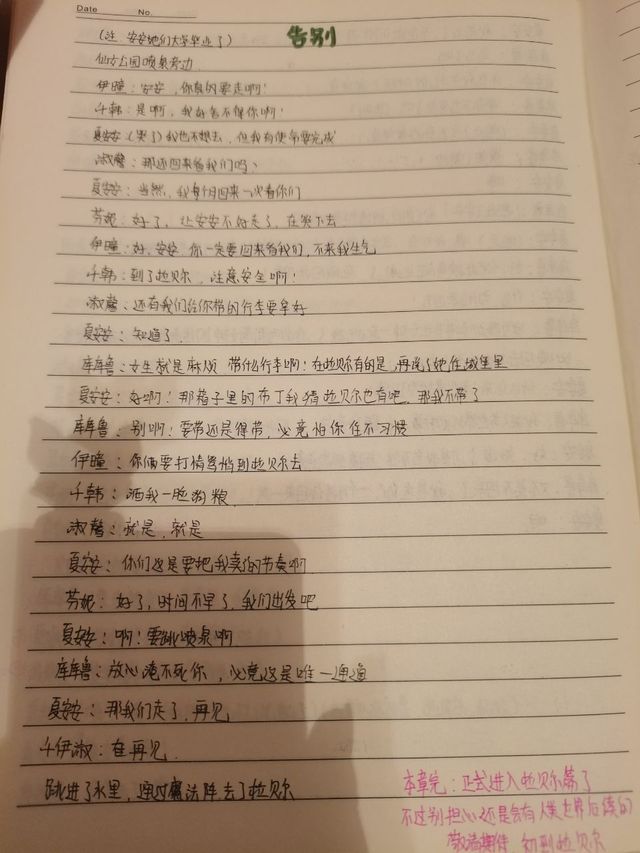 Date No.
告别
(注 安安她们大学毕业了)
仙女公园喷泉旁边
伊瞳：安安，你真的要走啊！
千韩：是啊，我好舍不得你啊！
夏安安(哭了)我也不想去，但我有使命要完成
淑馨：那还回来看我们吗、
夏安安：当然，我每个月回来一次看你们
芬妮：好了，让安安不好走了，在哭下去
伊瞳：好，安安，你一定要回来看我们，不来我生气
千韩：到了拉贝尔，注意安全啊！
淑馨：还有我们给你带的行李要拿好
夏安安：知道了
库库鲁：女生就是麻烦 带什么行李啊！在拉贝尔有的是，再说了她住城堡里
夏安安：好啊！那箱子里的布丁我猜拉贝尔也有吧，那我不带了
库库鲁：别啊！要带还是得带，必竟怕你住不习惯
伊瞳：你俩要打情骂俏到拉贝尔去
千韩：洒我一脸狗粮
淑馨：就是，就是
夏安安：你们这是要把我卖的节奏啊
芬妮：好了，时间不早了，我们出发吧
夏安安：啊！要跳喷泉啊
库库鲁：放心淹不死你，必竟这是唯一通道
夏安安：那我们走了，再见
千伊淑：在再见
跳进了水里，通过魔法阵去了拉贝尔
本章完：正式进入拉贝尔篇了
不过别担心还是会有人类世界后续的
敬请期待，初到拉贝尔